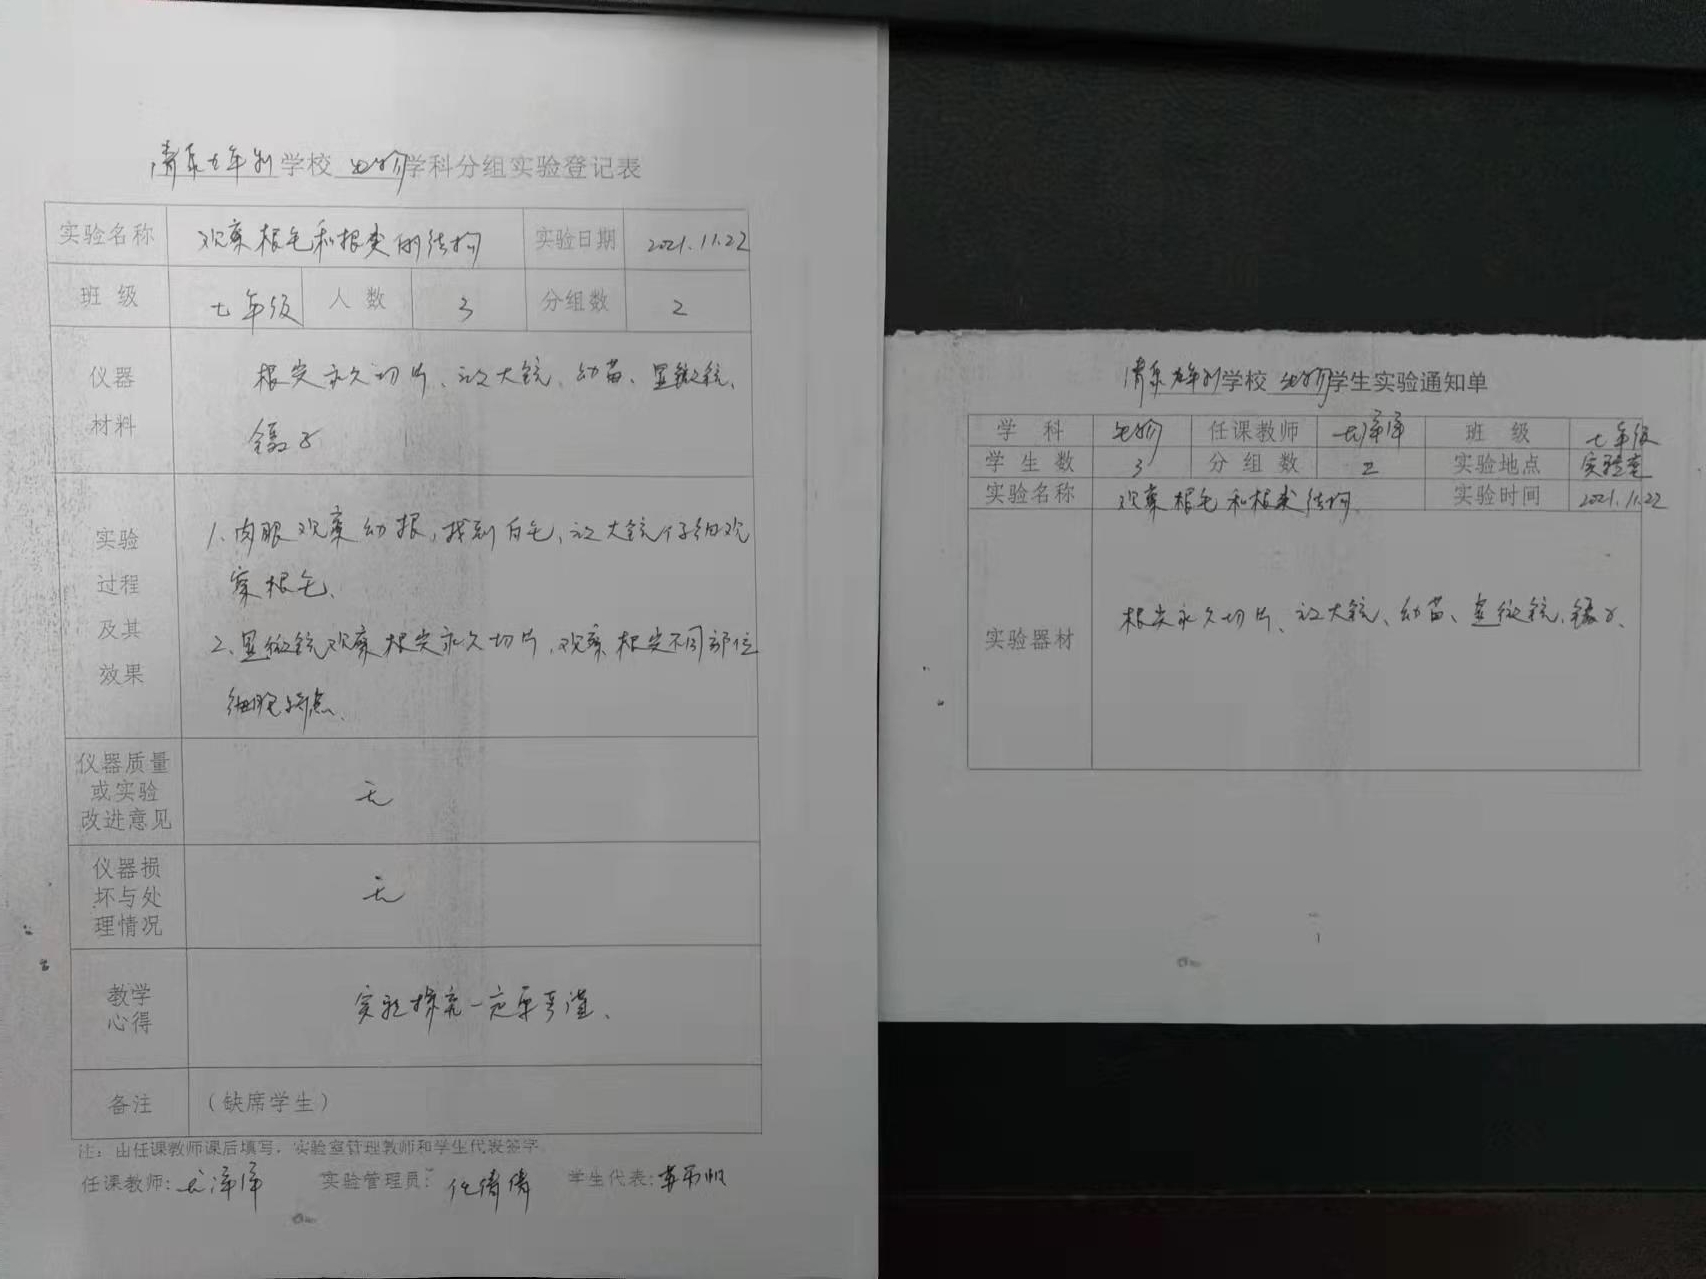 清东九年制学校 生物学科分组实验登记表
实验名称 观察根毛和根尖的结构 实验日期 2021.11.22
班 级 七年级 人 数 3 分组数 2
仪器 根尖永久切片、放大镜、幼苗、显微镜、
材料 镊子
实验
过程
及其
效果
1.肉眼观察幼根,找到白毛,放大镜仔细观
察根毛.
2.显微镜观察根尖永久切片,观察根尖不同部位
细胞特点.
仪器质量
或实验
改进意见
无
仪器损
坏与处
理情况
无
教学
心得
实验探究一定要严谨、
备注 (缺席学生)
注:由任课教师课后填写,实验室管理教师和学生代表签字
任课教师: 实验管理员: 任倩倩 学生代表:
清东九年制学校 生物学生实验通知单
学 科 生物 任课教师 班 级 七年级
学 生 数 3 分 组 数 2 实验地点 实验室
实验名称 观察根毛和根尖结构 实验时间 2021.11.22
实验器材 根尖永久切片、放大镜、幼苗、显微镜、镊子、